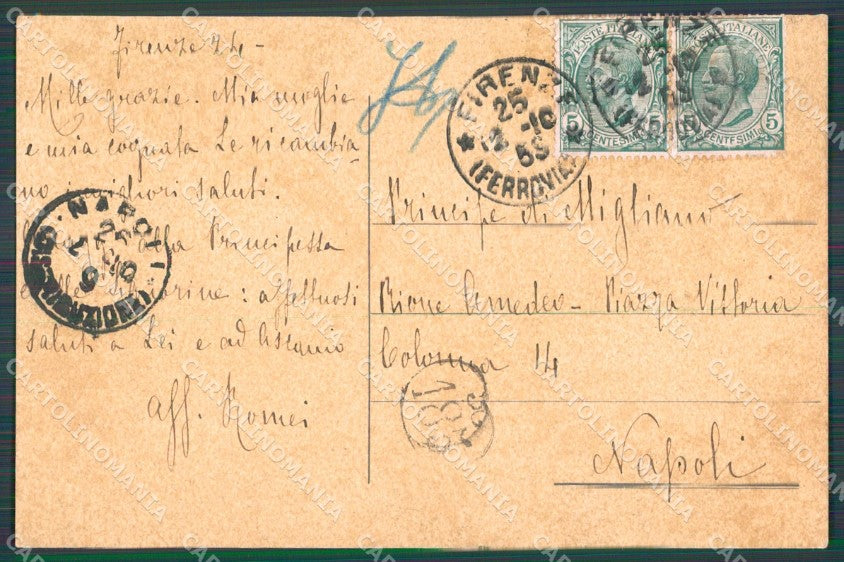 Firenze 24-
Mille grazie. Mia moglie
e mia cognata Le ricambia-
no i migliori saluti.
alla Principessa
e alle Signorine: affettuosi
saluti a Lei e ad Ascanio
aff. Romei
FIRENZE
25
12-10
(FERROVIA)
POSTE ITALIANE
5 CENTESIMI 5
POSTE ITALIANE
5 CENTESIMI 5
Principe di Migliano
Rione Amedeo - Piazza Vittoria
Colonna 14
Napoli
NAPOLI
188
CARTOLINOMANIA